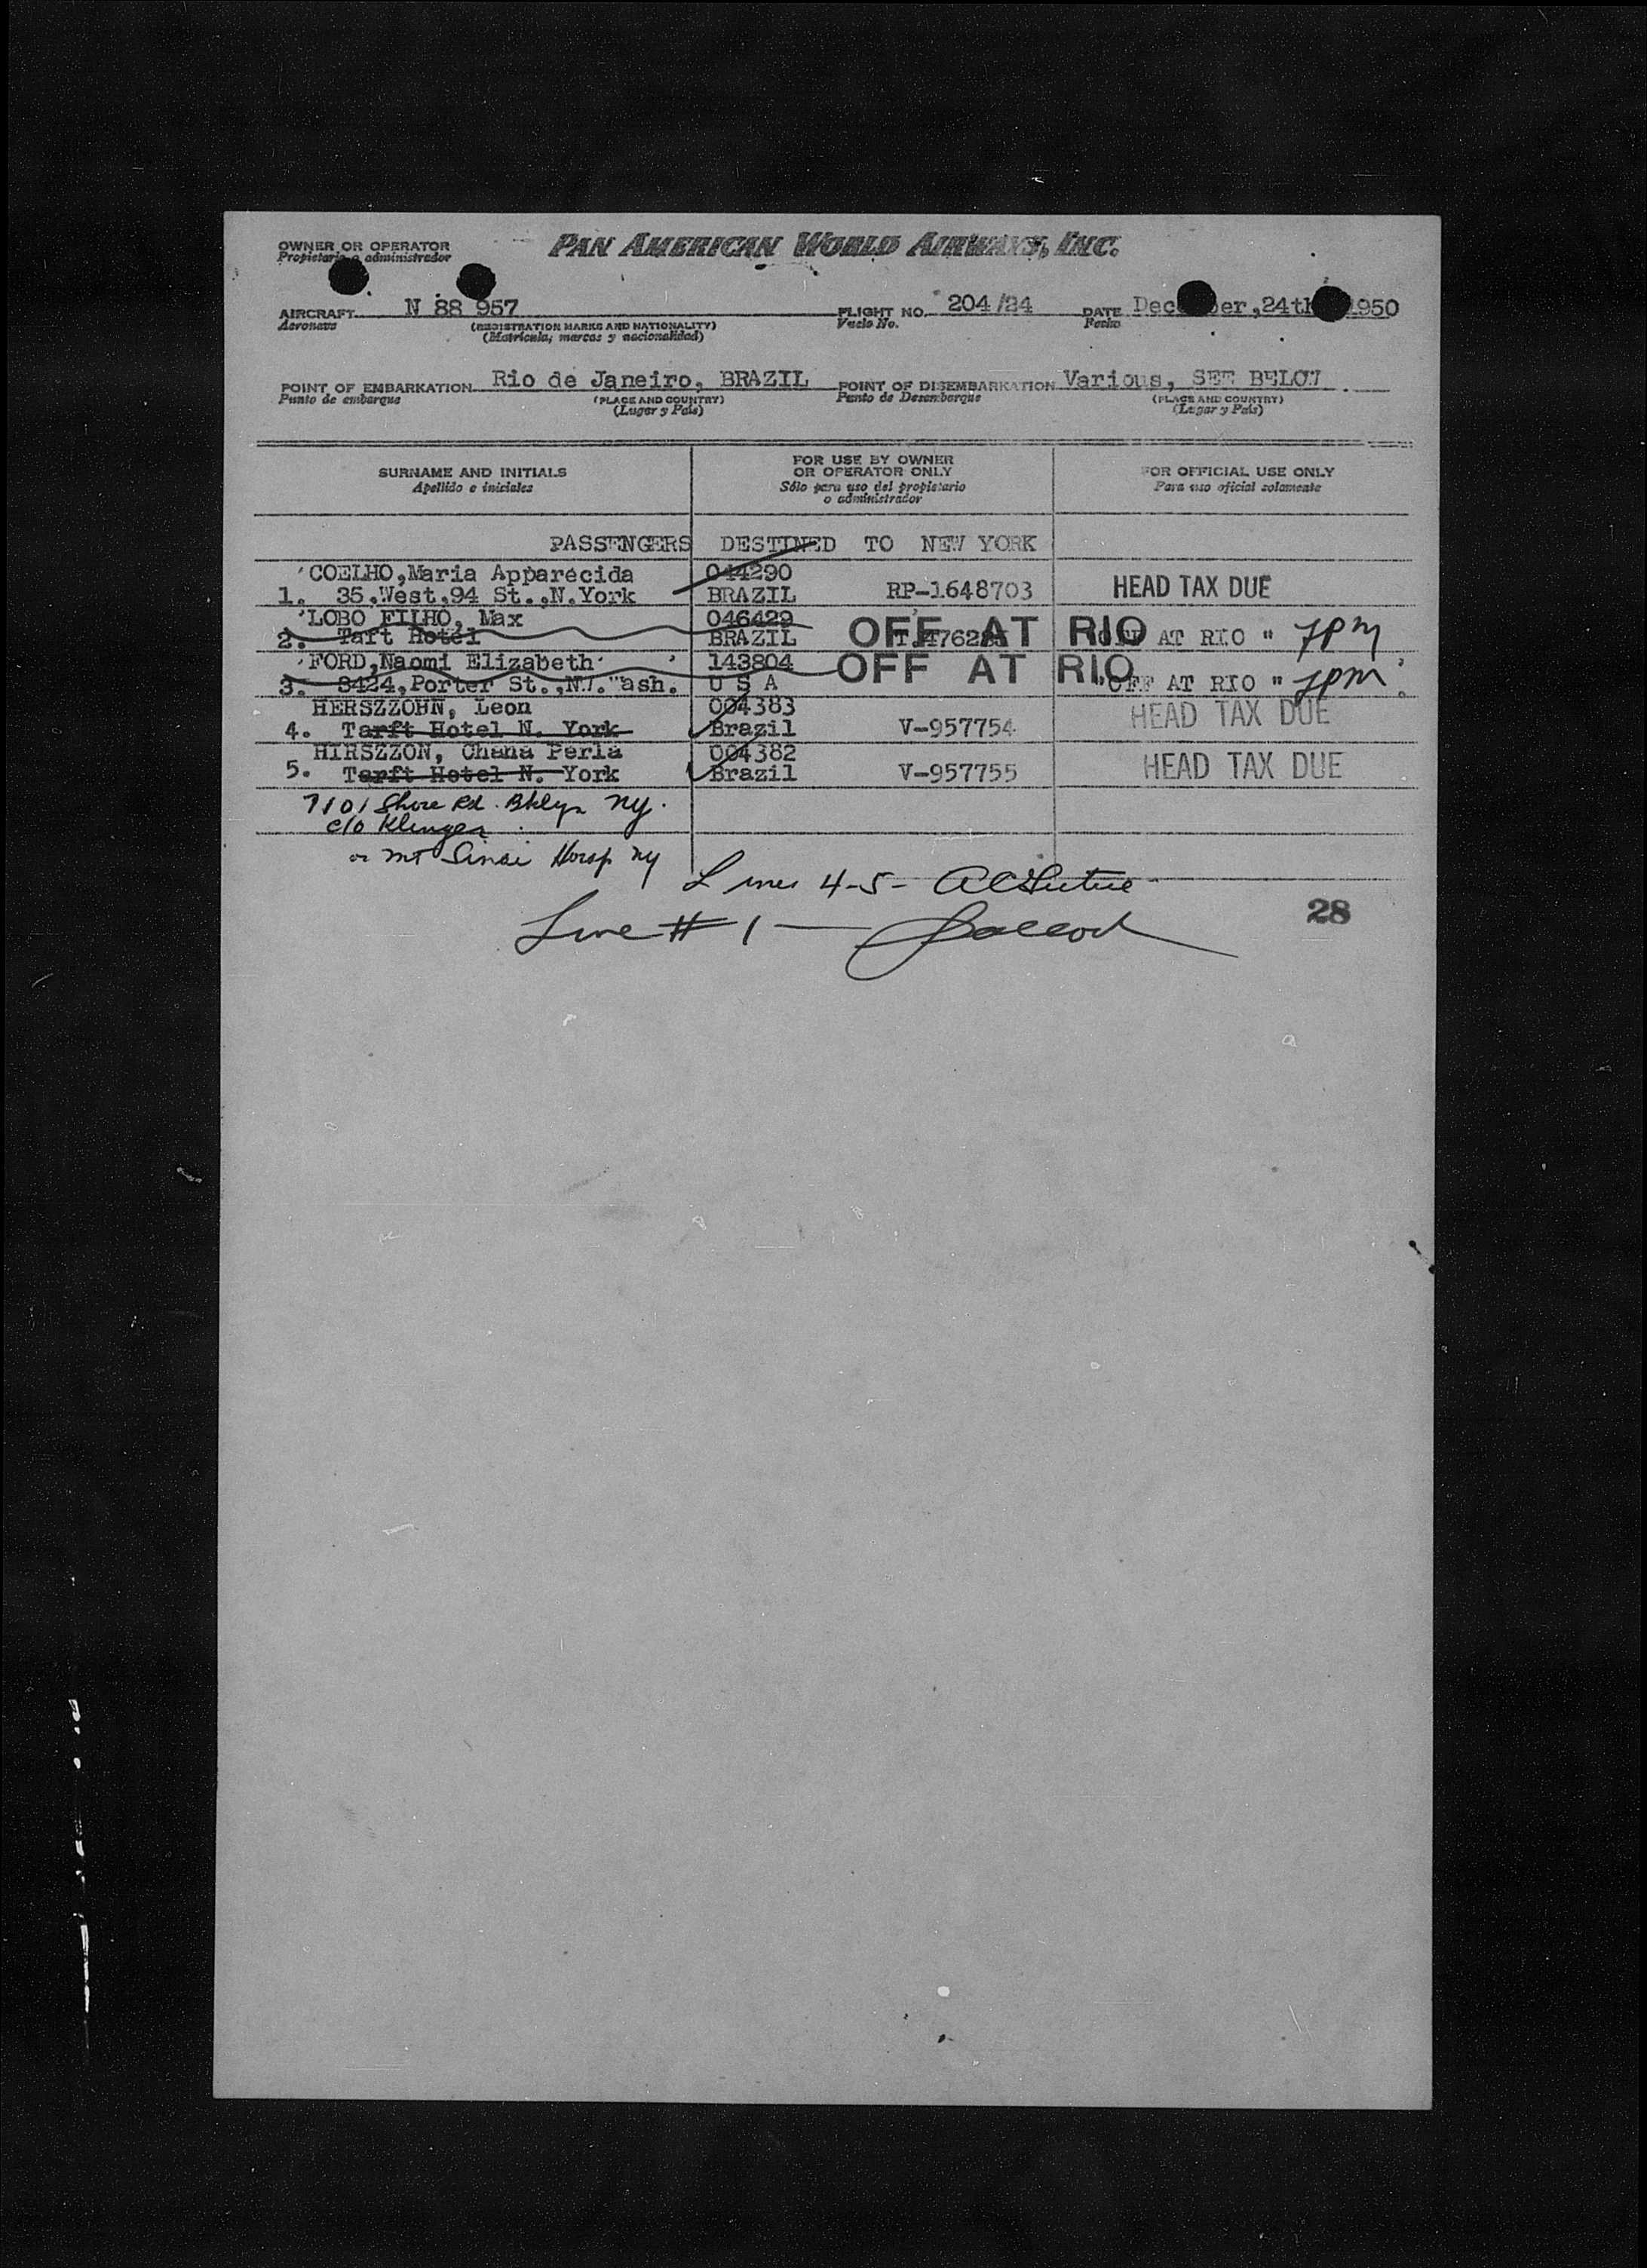 OWNER OR OPERATOR PAN AMERICAN WORLD AIRWAYS, INC.
Propietario o administrador
AIRCRAFT N 88 957 FLIGHT NO. 204/24 DATE Dec ber,24th 1950
Aeronave (REGISTRATION MARKS AND NATIONALITY) Vuelo No. Fecha
(Matrícula, marcas y nacionalidad)
POINT OF EMBARKATION Rio de Janeiro, BRAZIL POINT OF DISEMBARKATION Various, SEE BELOW
Punto de embarque (PLACE AND COUNTRY) Punto de Desembarque (PLACE AND COUNTRY)
(Lugar y País) (Lugar y País)
SURNAME AND INITIALS FOR USE BY OWNER OR OPERATOR ONLY FOR OFFICIAL USE ONLY
Apellido e iniciales Sólo para uso del propietario o administrador Para uso oficial solamente
PASSENGERS DESTINED TO NEW YORK
COELHO,Maria Apparecida 044290
1. 35,West,94 St.,N.York BRAZIL RP-1648703 HEAD TAX DUE
LOBO FILHO, Max 046429
2. Taft Hotel BRAZIL OFF AT RIO AT RIO "
FORD,Naomi Elizabeth 143804 OFF AT RIO
3. 3424,Porter St.,NW. ash. U S A "OFF AT RIO "
HERSZZOHN, Leon 004383
4. Tarft Hotel N. York Brazil V-957754 HEAD TAX DUE
HIRSZZON, Chana Perla 004382
5. Tarft Hotel N. York Brazil V-957755 HEAD TAX DUE
7101 Shore Rd. Bklyn NY.
c/o Klinger
or Mt Sinai Hosp NY
Lines 4-5-
Line # 1 —
28